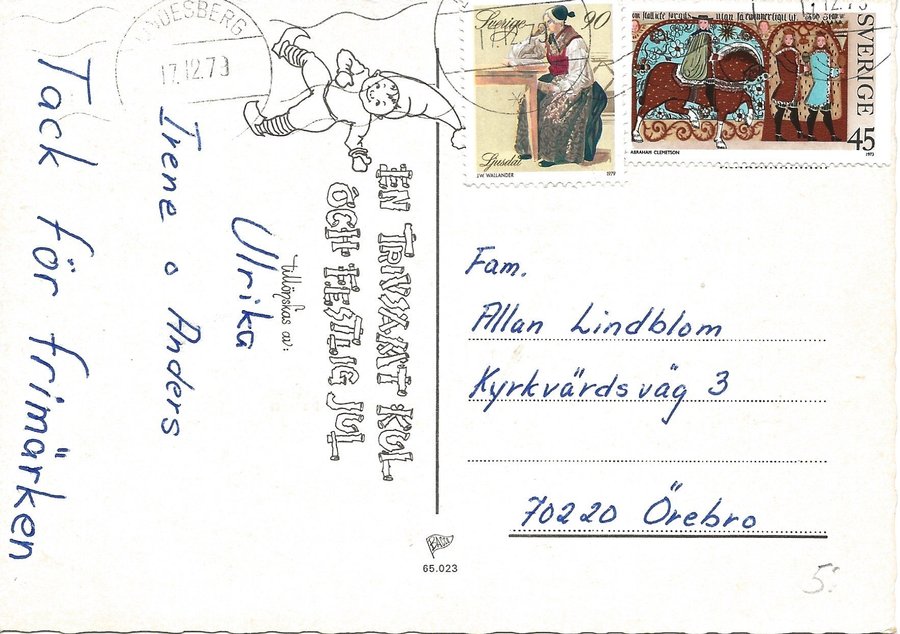 EN TRIVSAMT KUL
OCH FESTLIG JUL
tillönskas av:
Ulrika
Irene o Anders
Tack för frimärken
17.12.79
Sverige 90
Ljusdal
J.W. WALLANDER 1979
SVERIGE
45
ABRAHAM CLEMETSON 1973
12.79
Fam.
Allan Lindblom
Kyrkvärdsväg 3
70220 Örebro
65.023
5: